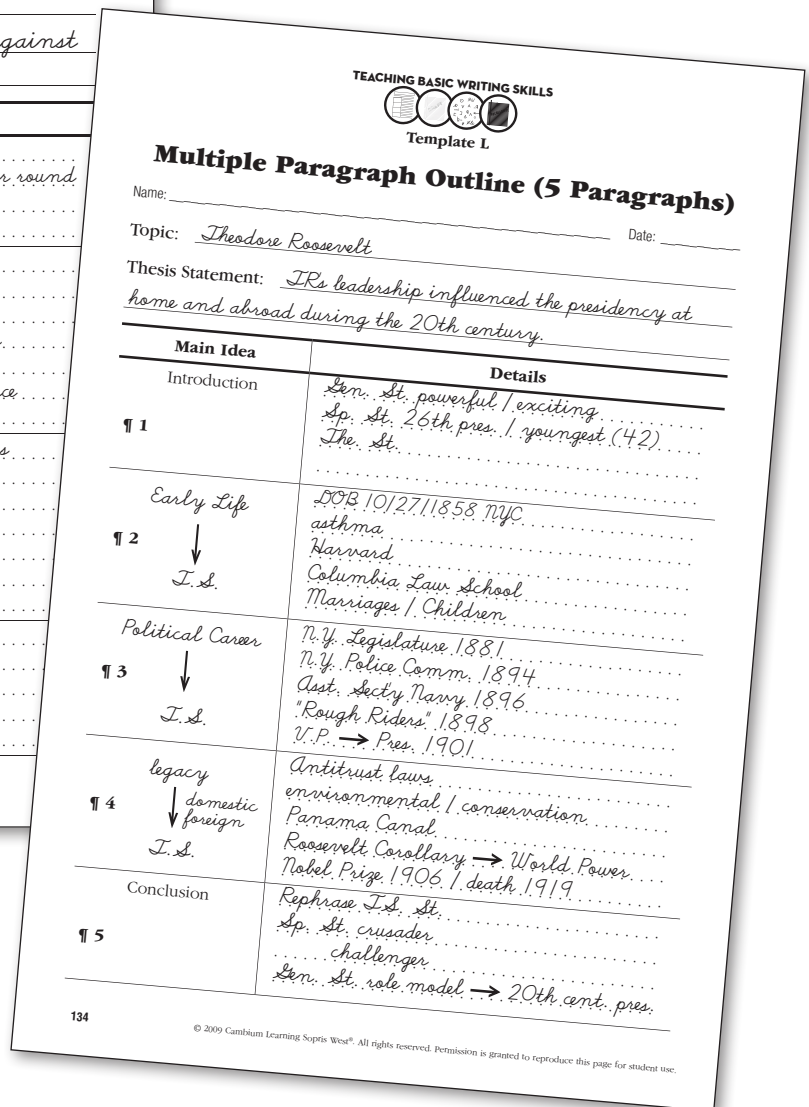 gainst
r round
ce
s
TEACHING BASIC WRITING SKILLS
Template L
Multiple Paragraph Outline (5 Paragraphs)
Name: Date:
Topic: Theodore Roosevelt
Thesis Statement: TR's leadership influenced the presidency at
home and abroad during the 20th century.
Main Idea Details
Introduction
¶ 1
Gen. St. powerful / exciting
Sp. St. 26th pres. / youngest (42)
The. St.
Early Life
¶ 2
T.S.
DOB 10/27/1858 NYC
asthma
Harvard
Columbia Law School
Marriages / Children
Political Career
¶ 3
T.S.
N.Y. Legislature 1881
N.Y. Police Comm. 1894
Asst. Sect'y Navy 1896
"Rough Riders" 1898
V.P. → Pres. 1901
legacy
¶ 4
domestic
foreign
T.S.
Antitrust laws
environmental / conservation
Panama Canal
Roosevelt Corollary → World Power
Nobel Prize 1906 / death 1919
Conclusion
¶ 5
Rephrase T.S. St.
Sp. St. crusader
challenger
Gen. St. role model → 20th cent. pres.
134
© 2009 Cambium Learning Sopris West®. All rights reserved. Permission is granted to reproduce this page for student use.